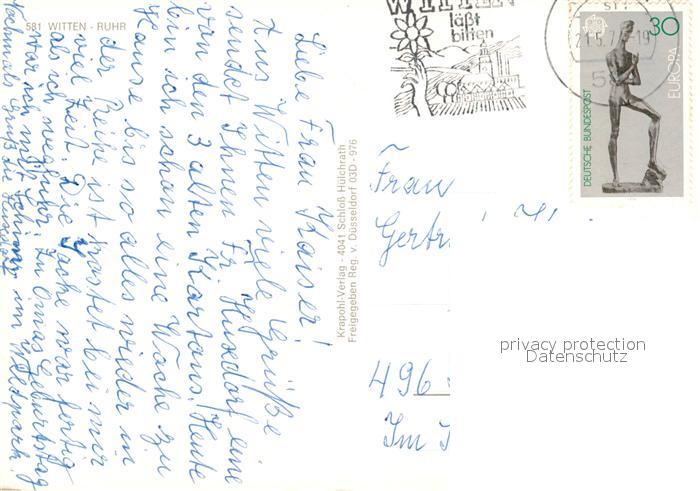 581 WITTEN - RUHR
Liebe Frau Kaiser!
Aus Witten viele Grüße
sendet Ihnen Fr. Huxdorf eine
von den 3 alten Kartons. Heute
bin ich schon eine Woche zu
Hause bis so alles wieder in
der Reihe ist kostet bei mir
viel Zeit. Die Jacke war fertig
als ich wegfuhr. In Omas Geburtstag
war ich mit im Waldpark.
Nochmals Gruß die
Krapohl-Verlag - 4041 Schloß Hülchrath
Freigegeben Reg. v. Düsseldorf 03D - 976
WITTEN
läßt
bitten
30
EUROPA
DEUTSCHE BUNDESPOST
Frau
Gertr
496
Im
privacy protection
Datenschutz